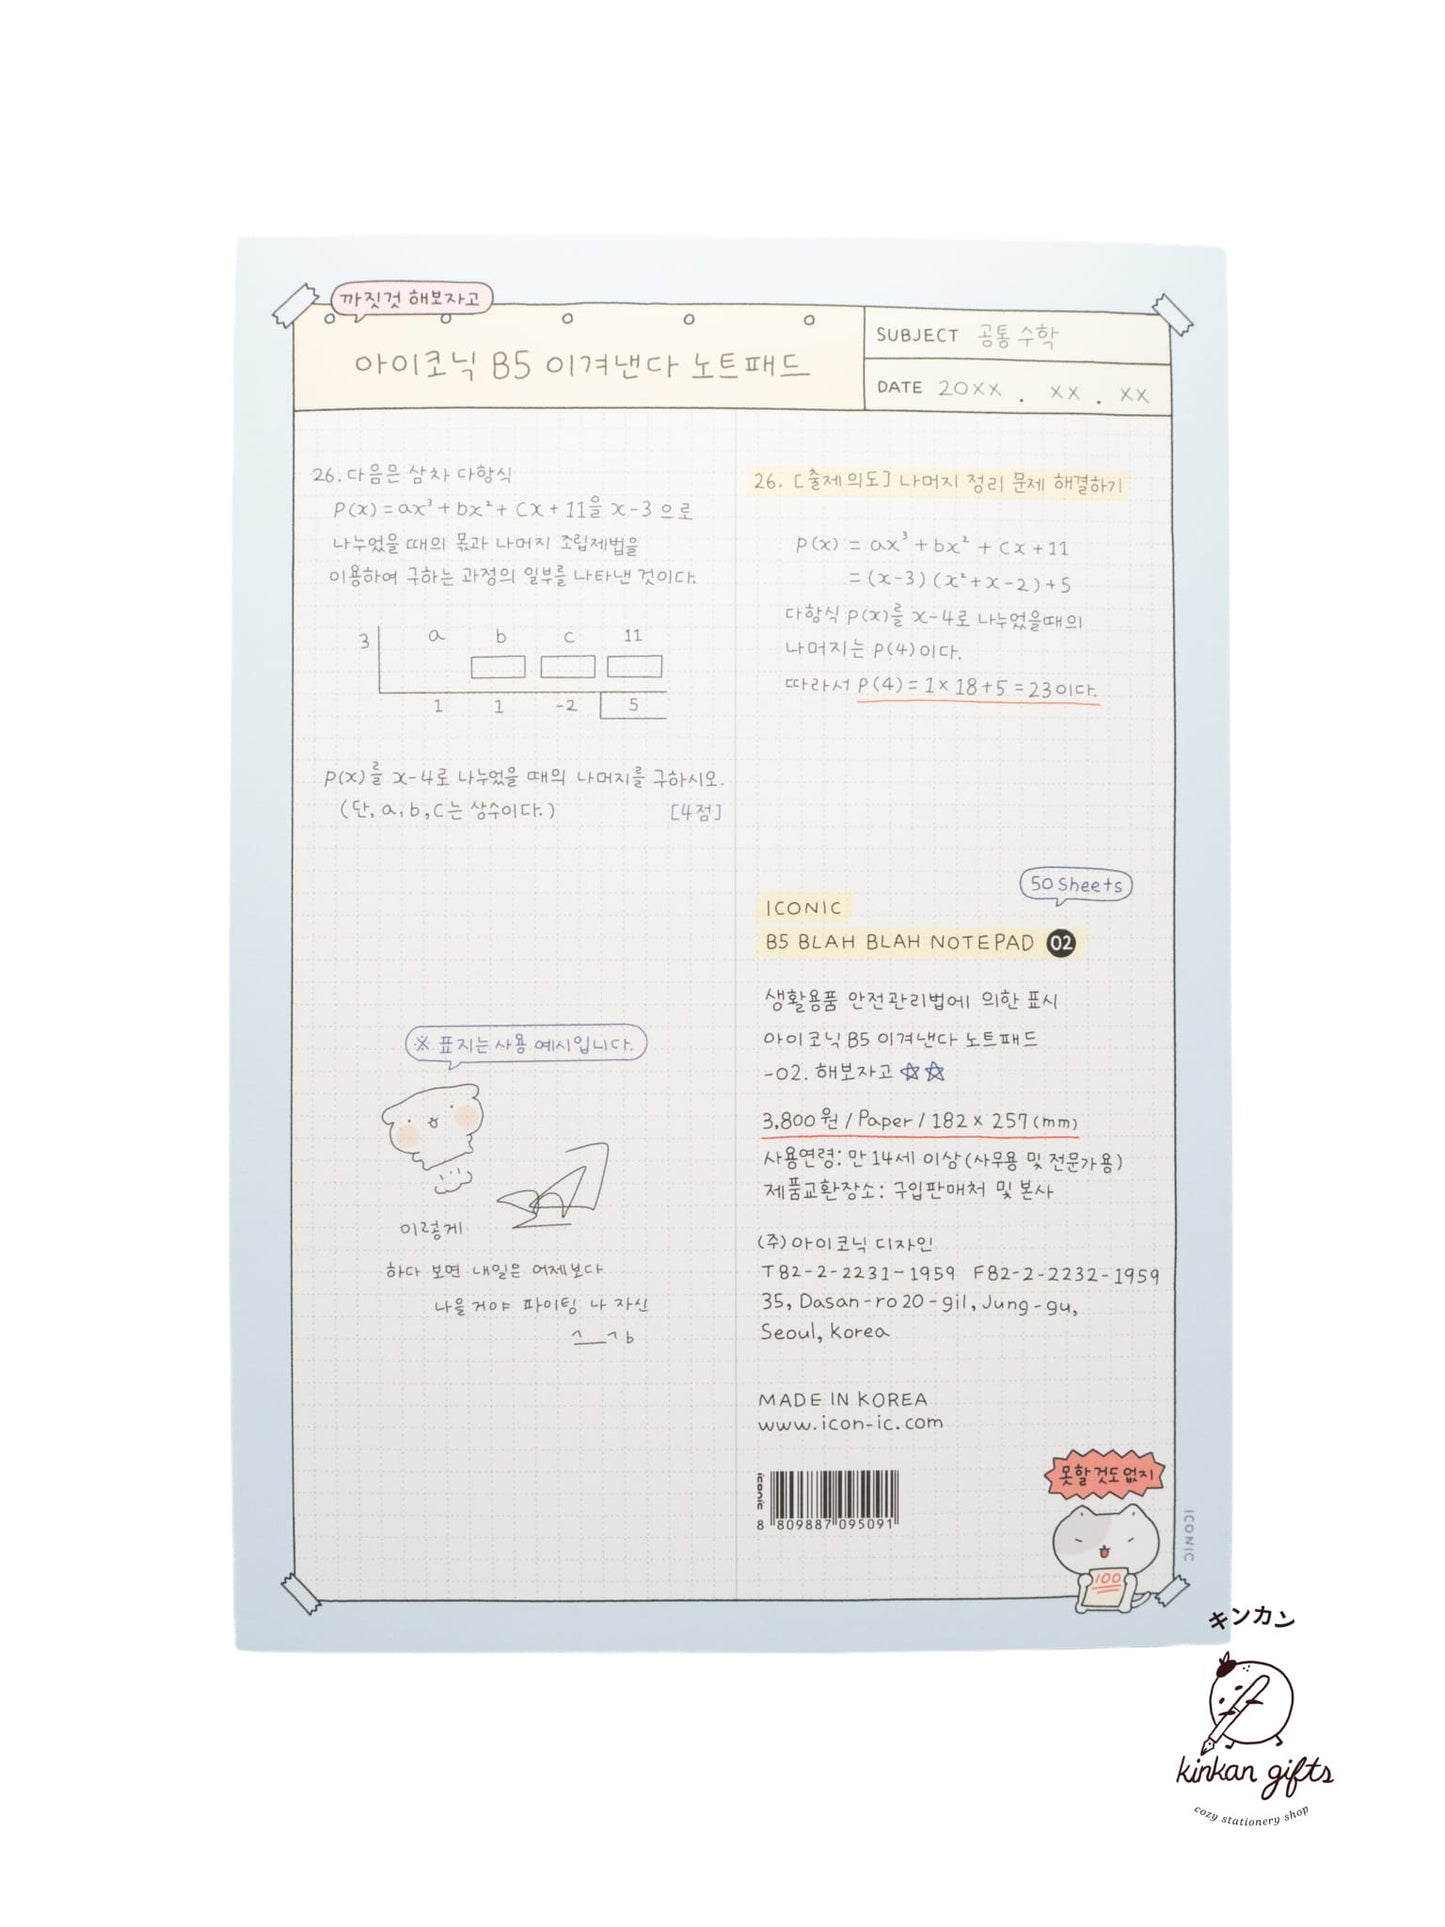 까짓것 해보자고
아이코닉 B5 이겨낸다 노트패드
SUBJECT 공통 수학
DATE 20XX . XX . XX
26. 다음은 삼차 다항식
P(x) = ax³ + bx² + cx + 11을 x-3 으로
나누었을 때의 몫과 나머지 조립제법을
이용하여 구하는 과정의 일부를 나타낸 것이다.
3 a b c 11
1 1 -2 5
P(x)를 x-4로 나누었을 때의 나머지를 구하시오.
(단, a, b, c는 상수이다.) [4점]
※ 표지는 사용 예시입니다.
이렇게
하다 보면 내일은 어제보다
나을거야 파이팅 나 자신
^__^b
26. [출제의도] 나머지 정리 문제 해결하기
P(x) = ax³ + bx² + cx + 11
= (x-3) (x²+x-2)+5
다항식 P(x)를 x-4로 나누었을때의
나머지는 P(4)이다.
따라서 P(4) = 1 × 18+5 = 23이다.
50 Sheets
ICONIC
B5 BLAH BLAH NOTEPAD 02
생활용품 안전관리법에 의한 표시
아이코닉 B5 이겨낸다 노트패드
-02. 해보자고 ☆☆
3,800원 / Paper / 182 x 257 (mm)
사용연령: 만 14세 이상 (사무용 및 전문가용)
제품교환장소: 구입판매처 및 본사
(주)아이코닉 디자인
T82-2-2231-1959 F82-2-2232-1959
35, Dasan-ro 20-gil, Jung-gu,
Seoul, Korea
MADE IN KOREA
www.icon-ic.com
iconic
8 809887 095091
못할것도없지
100
ICONIC
キンカン
kinkan gifts
cozy stationery shop